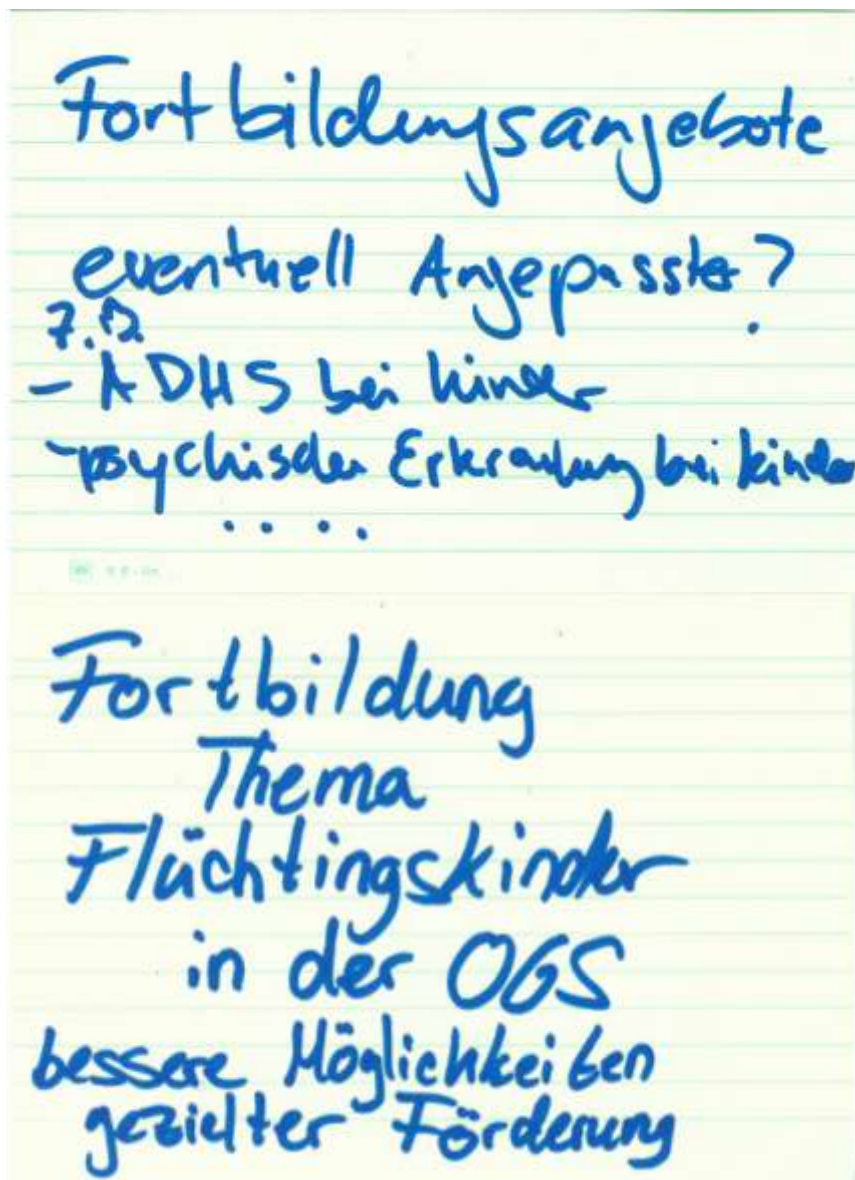 Fortbildungsangebote
eventuell Angepasster?
z.B.
- ADHS bei kinder
- psychischer Erkrankung bei kinder
. . . .
Fortbildung
Thema
Flüchtingskinder
in der OGS
bessere Möglichkeiten
gezielter Förderung